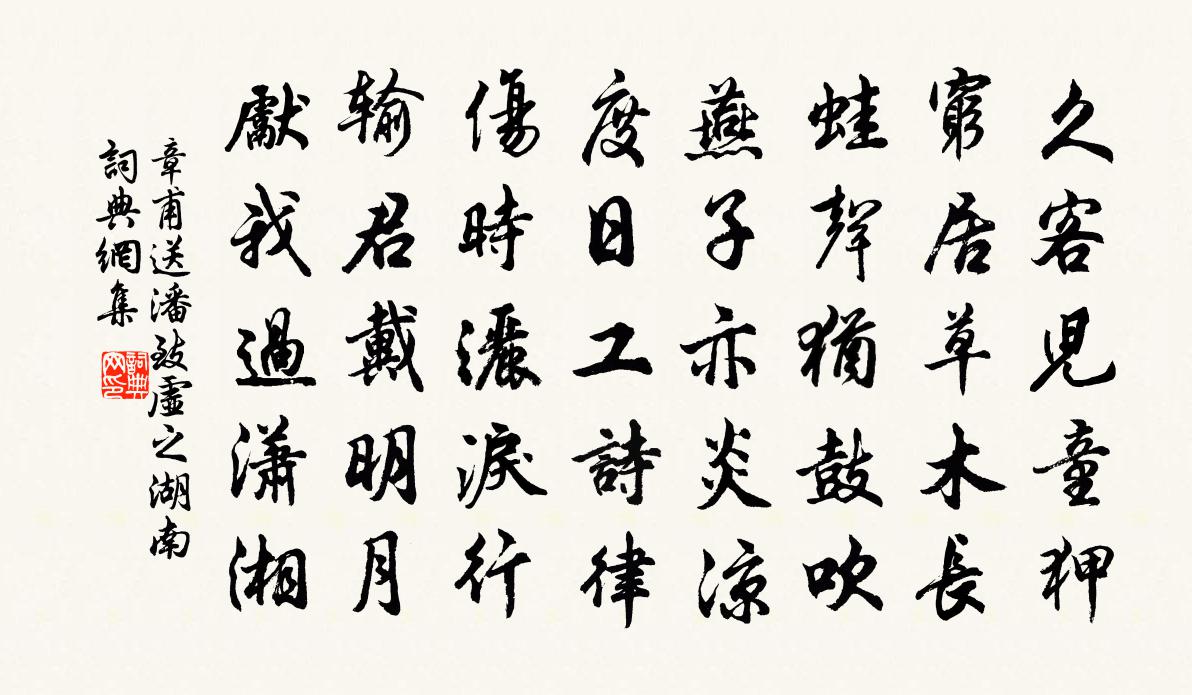 久客兒童狎
窮居草木長
蛙聲猶鼓吹
燕子亦炎涼
度日工詩律
傷時灑淚行
輸君戴明月
獻我過瀟湘
章甫送潘致虛之湖南
詞典網集
詞典
网印